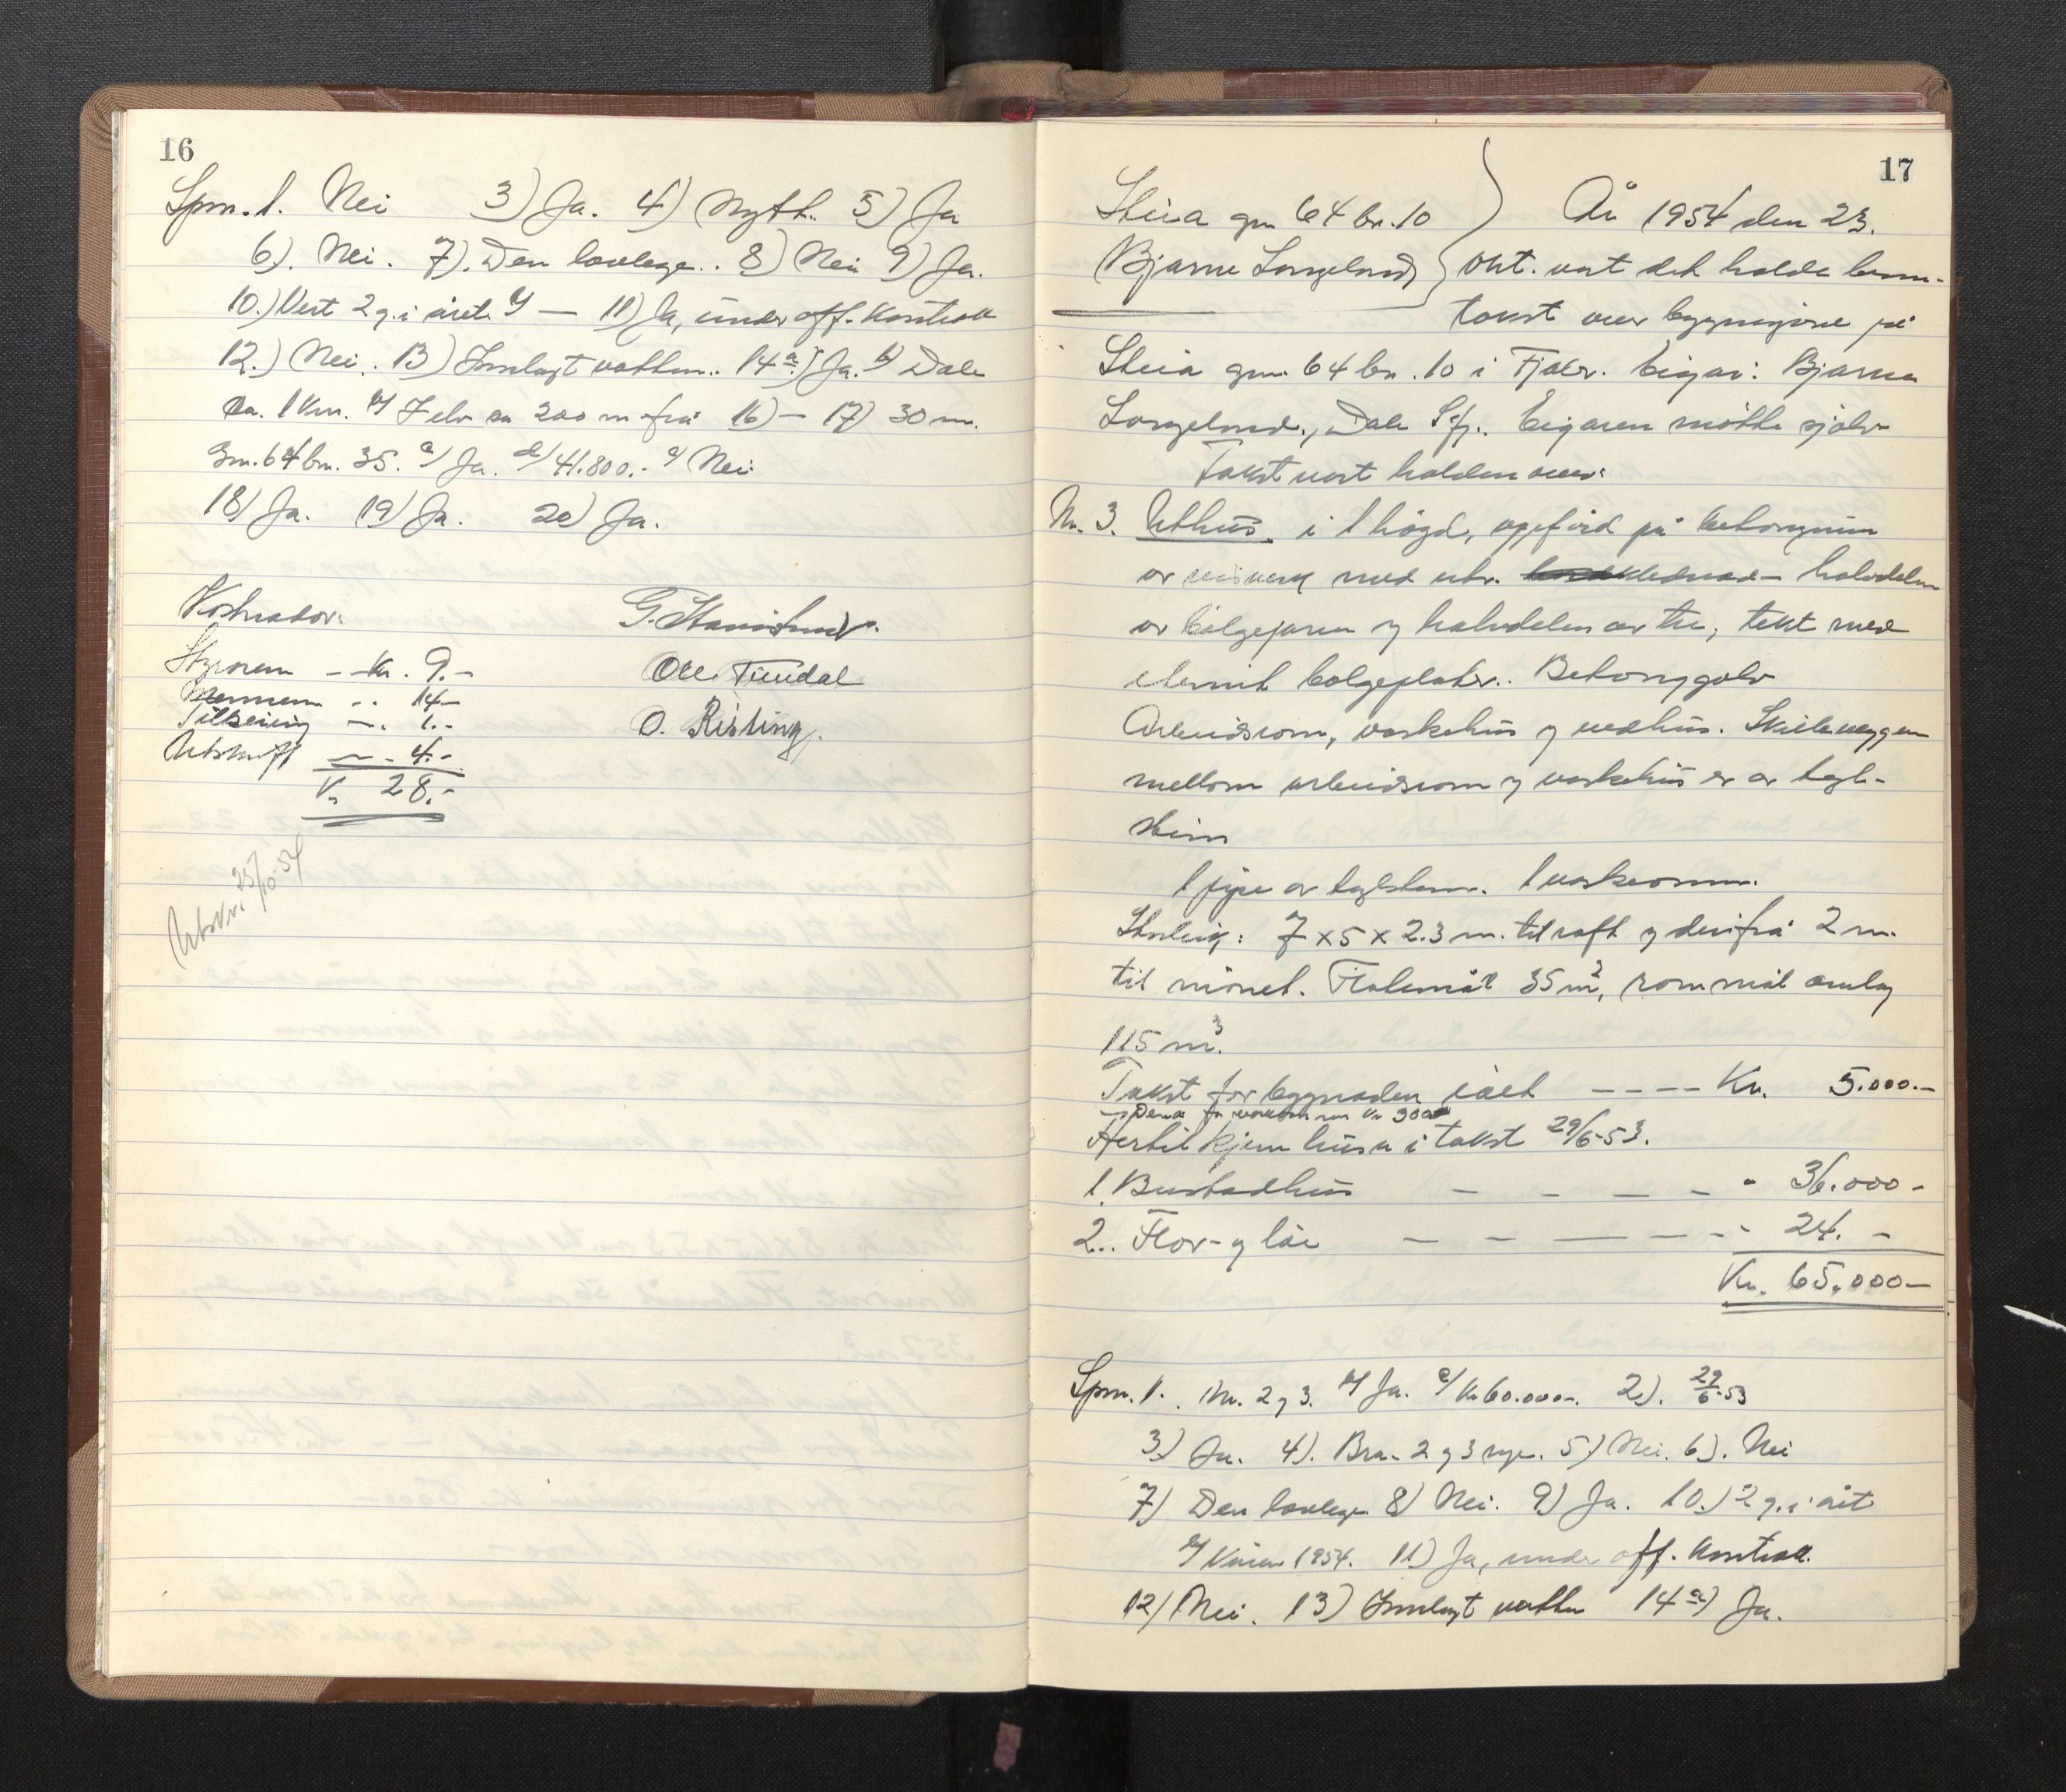 16
Spm. 1. Nei 3) Ja. 4) Nytt. 5) Ja
6). Nei. 7). Den lovlege.. 8) Nei 9) Ja.
10.) Vert 2 g. i året. b) — 11) Ja, under off. kontroll
12.) Nei. 13) Innlagt vatten.. 14 a) Ja. b) Dale
ca. 1 km. c) I elv ca 200 m frå 16) — 17) 30 m.
Gnr. 64 bnr. 35. c/ Ja. d/ 41.800.- e/ Nei
18) Ja. 19) Ja. 20) Ja.
Kostnader:
Styraren - - Kr. 9.-
Mennene .. 14-
Tilseiing - . 1.-
Utskrift - . 4.-
Kr 28.-
Ole Tundal
O. Risting.
Utskr. 25/10-54
17
Steia gnr 64 br. 10
Bjarne Longeland
År 1954 den 23.
okt. vart det halde brann-
takst over bygningane på
Steia gnr. 64 bnr. 10 i Fjaler. Eigar: Bjarne
Longeland, Dale Sfj.. Eigaren møtte sjølv
Takst vart halden over:
Nr. 3. Uthus i 1 høgd, oppførd på betongmur
av reisverk med utv. klednad - halvdelen
av bølgejarn og halvdelen av tre, tekt med
eternit bølgeplater.. Betonggolv
Arbeidsrom, vaskehus og vedhus. Skilleveggen
mellom arbeidsrom og vaskehus er av tegl-
stein
1 pipe av teglstein. 1 vaskeomn.
Storleik: 7 x 5 x 2.3 m. til raft og derifrå 2 m.
til mønet. Flatemål 35 m², rommål omlag
115 m³.
Takst for bygnaden i alt - - - - Kr. 5.000.-
Herav for vaskeomn kr 300
Hertil kjem husa i takst 29/6-53.
1 Bustadhus - - - - " 36.000-
2.. Flor- og løe - - - - - - 24. -
Kr. 65.000-
Spm. 1. . Nr. 2 og 3. b/ Ja. c/ Kr 60.000-. 2). 29/6-53
3) Ja. 4). Bra - 2 og 3 nye. 5) Nei. 6). Nei
7) Den lovlege 8) Nei. 9) Ja. 10.) 2 g. i året
b/ Våren 1954. 11) Ja, under off. kontroll.
12) Nei. 13) Innlagt vatten 14 a) Ja.